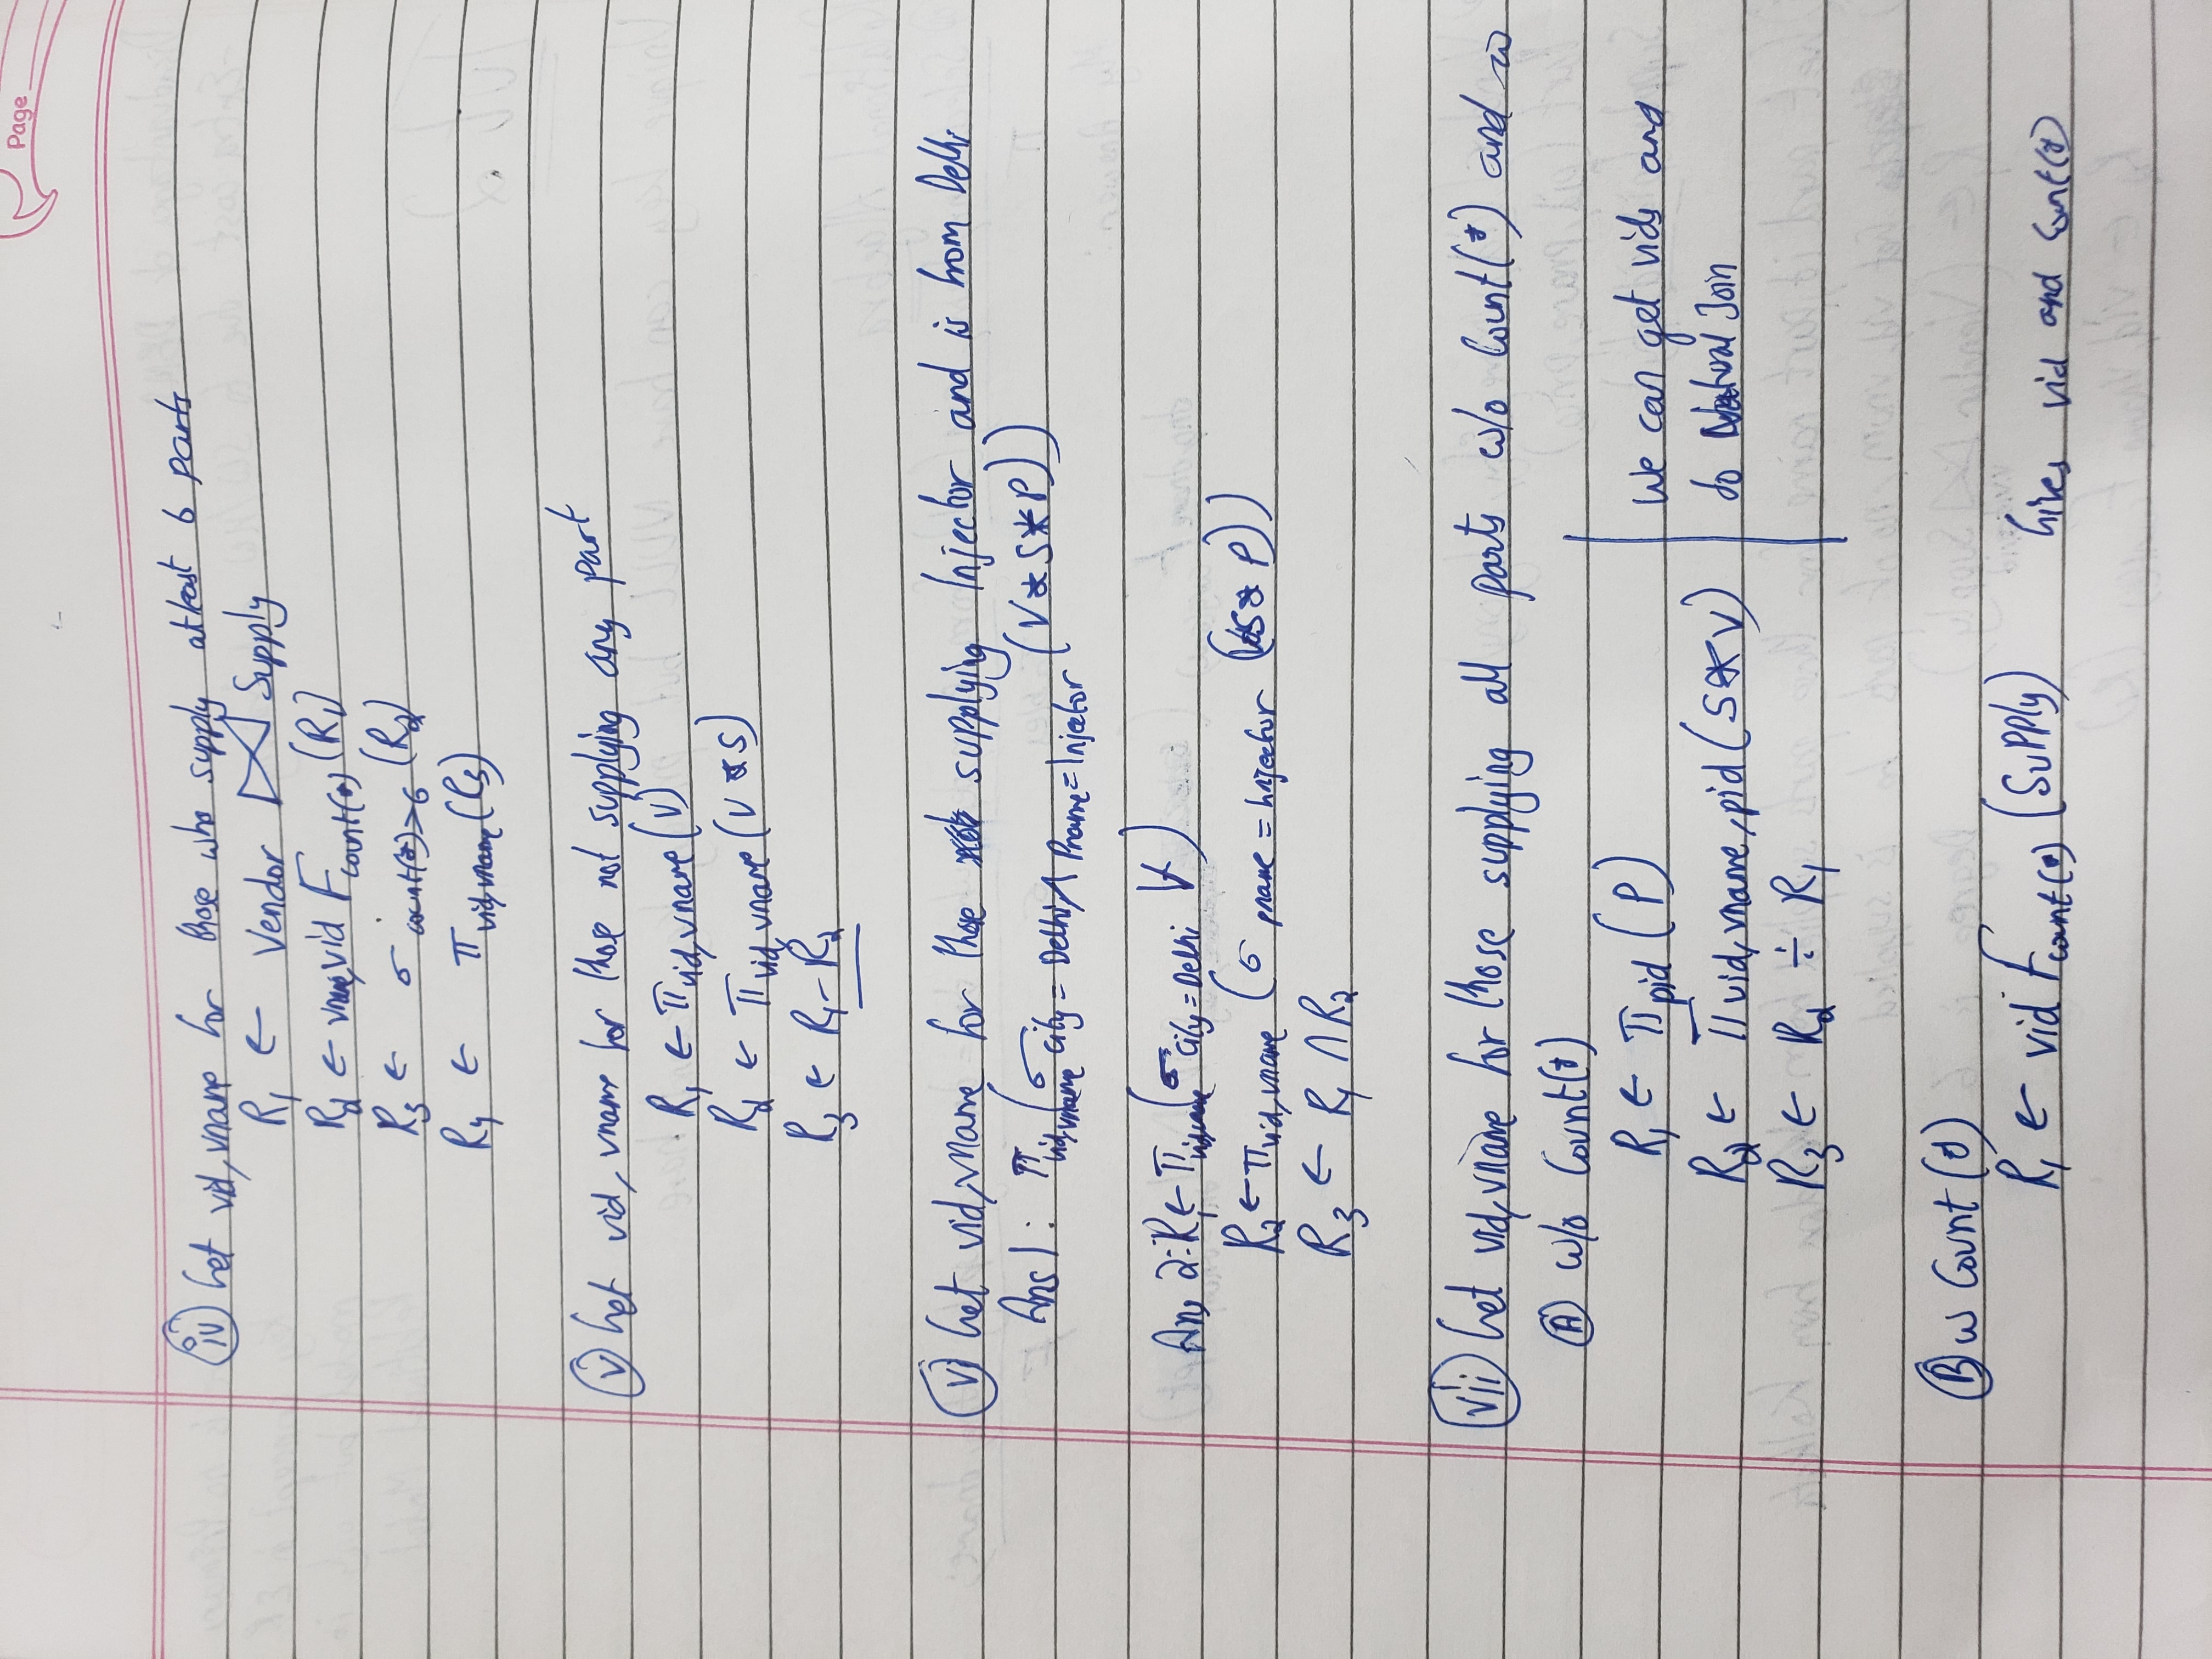 Page
iv Get vid, vname for those who supply atleast 6 parts
R1 ← Vendor ⋈ Supply
R2 ← vname,vid F count(*) (R1)
R3 ← σ count(*)>6 (R2)
R4 ← π vid,vname (R3)
v Get vid, vname for those not supplying any part
R1 ← π vid,vname (V)
R2 ← π vid,vname (V * S)
R3 ← R1 - R2
vi Get vid,vname for those supplying Injector and is from Delhi
Ans 1: π vid,vname (σ City = Delhi ∧ Pname = Injector (V * S * P))
Ans 2: R1 ← π vid,vname (σ City = Delhi V)
R2 ← π vid,vname (σ pname = Injector (V*S * P))
R3 ← R1 ∩ R2
vii Get vid,vname for those supplying all parts w/o Count(*) and w
A w/o Count(*)
R1 ← π pid (P)
R2 ← π vid, vname, pid (S * V)
R3 ← R2 ÷ R1
We can get vids and
do Natural Join
B w Count(*)
R1 ← vid F count(*) (Supply) Gives vid and Count(*)